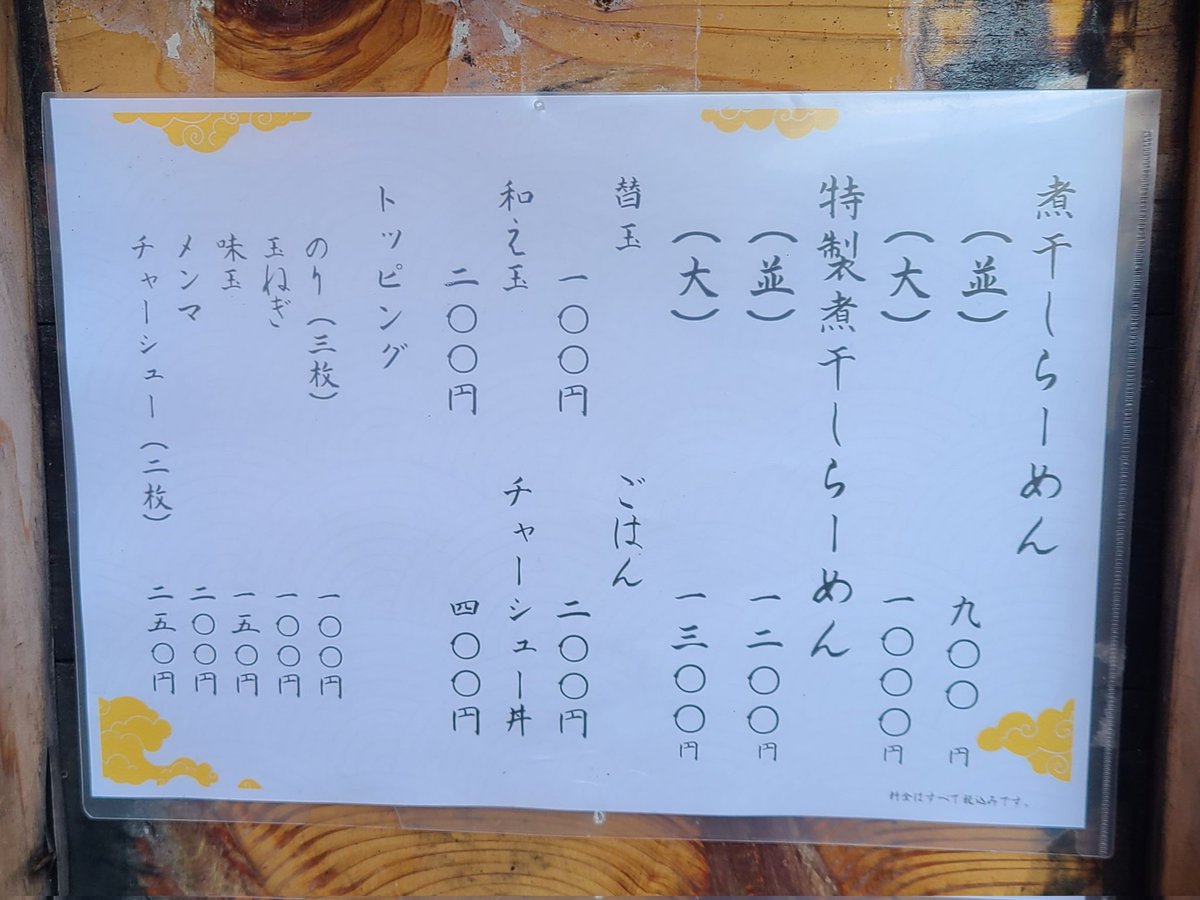 煮干しらーめん
（並） 九〇〇円
（大） 一〇〇〇円
特製煮干しらーめん
（並） 一二〇〇円
（大） 一三〇〇円
替玉 一〇〇円
ごはん 二〇〇円
和え玉 二〇〇円
チャーシュー丼 四〇〇円
トッピング
のり（三枚） 一〇〇円
玉ねぎ 一〇〇円
味玉 一五〇円
メンマ 二〇〇円
チャーシュー（二枚） 二五〇円
料金はすべて税込みです。